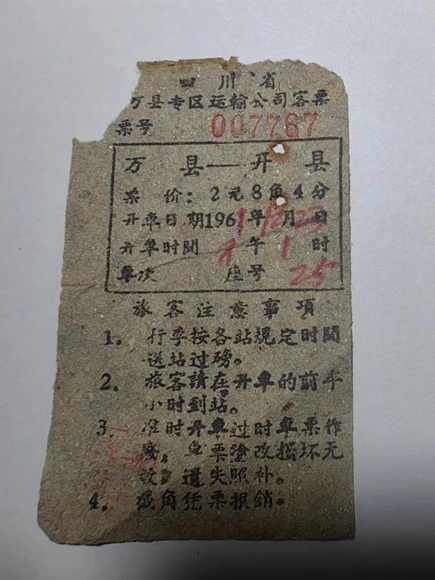 四川省
万县专区运输公司客票
票号 007767
万县——开县
票价：2元8角4分
开车日期1961年 月23日
开車时間 午1时
車次 座号 25
旅客注意事項
1。行李按各站規定时間
送站过磅。
2。旅客請在开車的前半
小时到站。
3。准时开車过时車票作
廢，车票塗改損坏无
效，遺失照补。
4。截角凭票报銷。